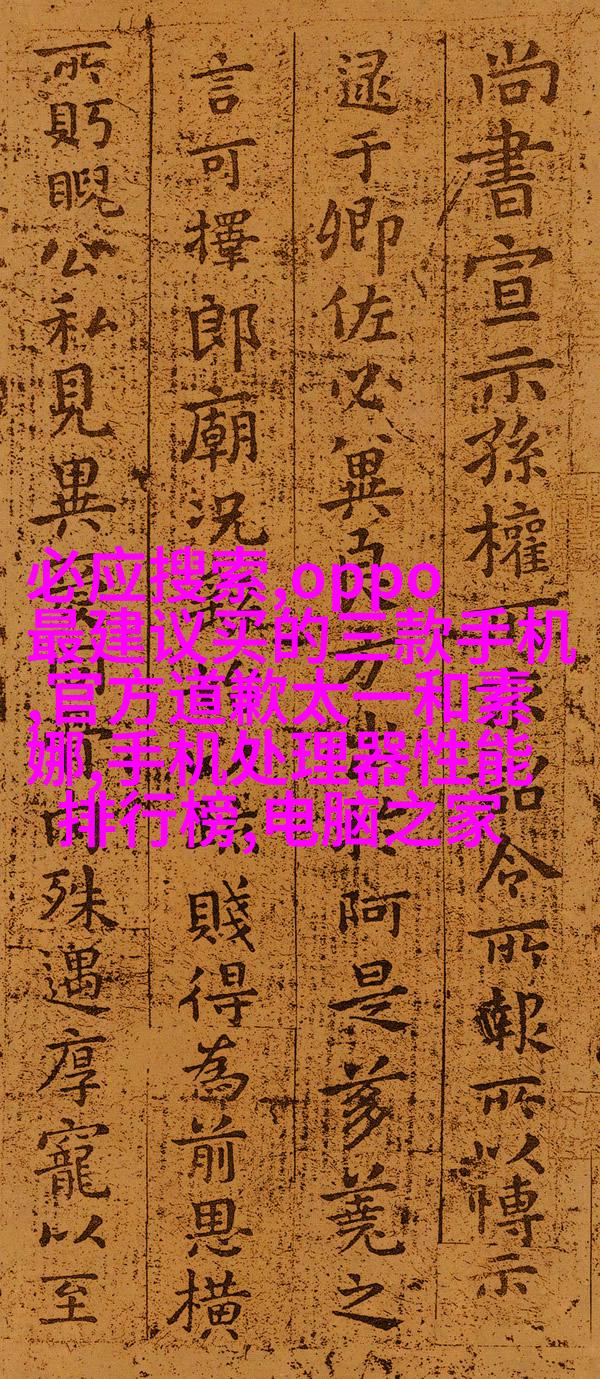 尚書宣示孫權令所報所以博示
逮于卿佐必異方阿是芻蕘之
言可擇郎廟況賤得為前恩橫
所眄睨公私見異殊遇厚寵以至
必应搜索,oppo
最建议买的三款手机
,官方道歉太一和素
娜,手机处理器性能
排行榜,电脑之家